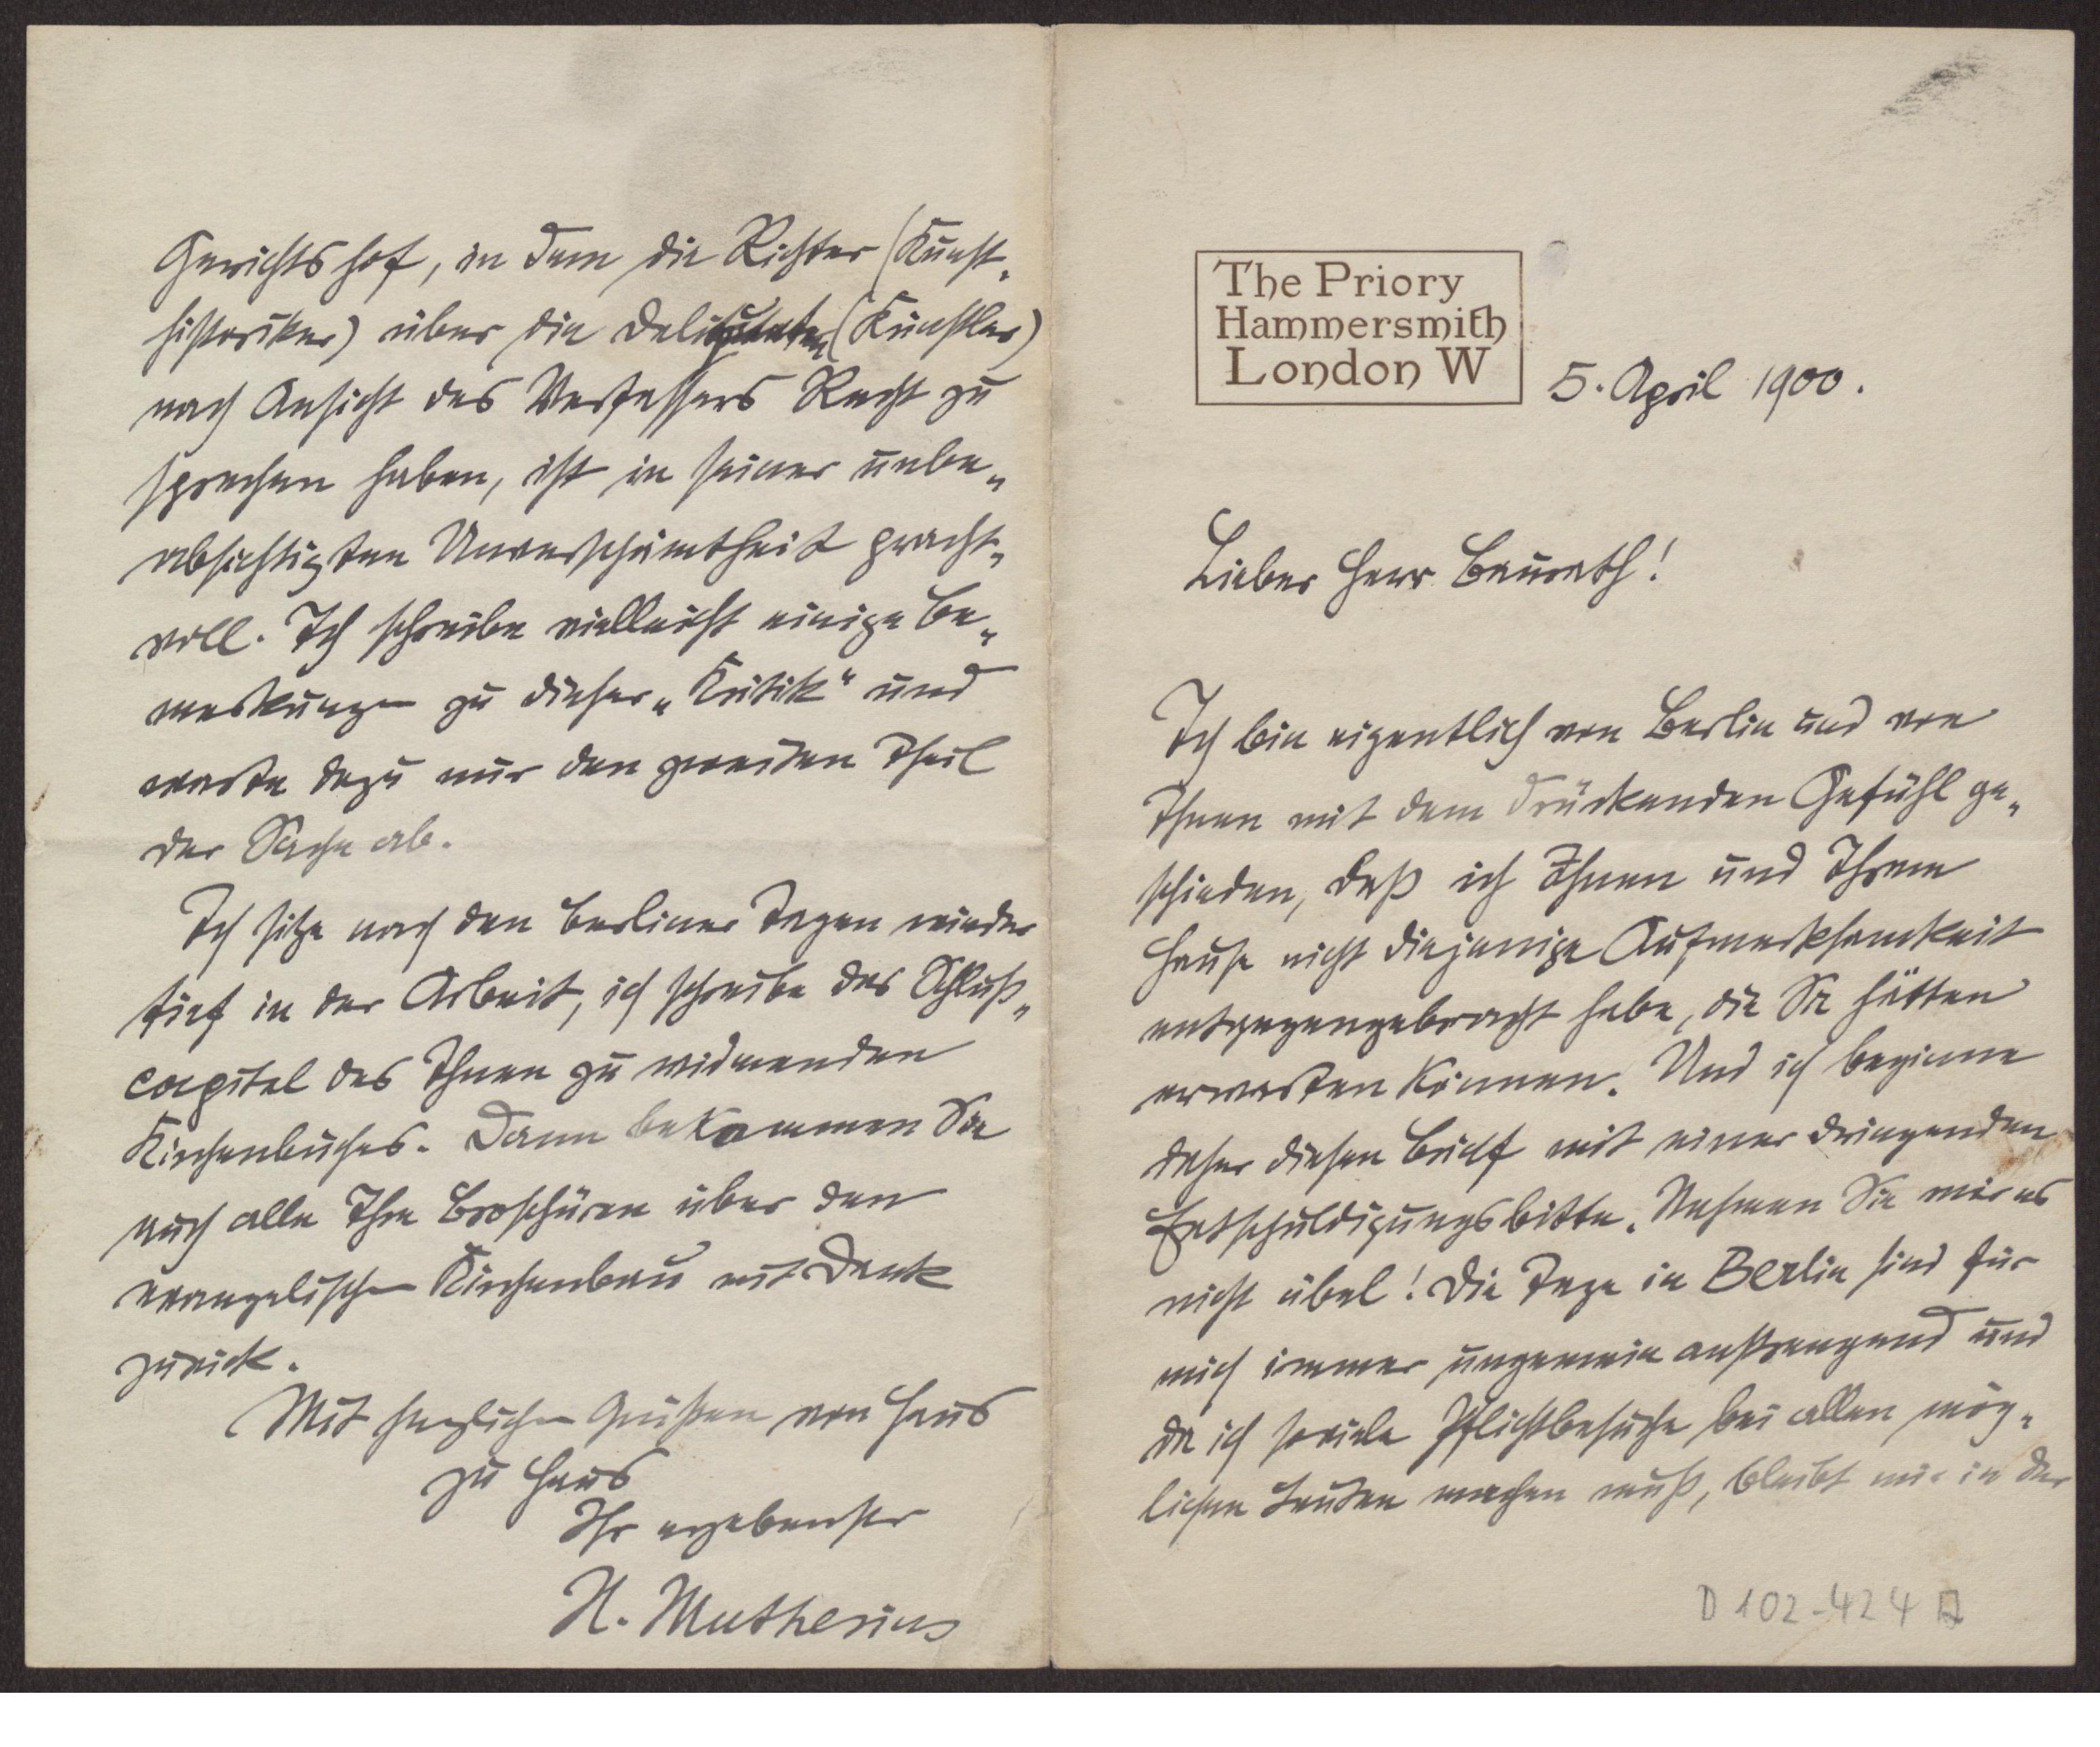 Gerichtshof, in dem die Richter (Kunst-
historiker) über die Delinquenten (Künstler)
nach Ansicht des Verfassers Recht zu
sprechen haben, ist in seiner unbe-
absichtigten Unverschämtheit pracht-
voll. Ich schreibe vielleicht einige Be-
merkungen zu dieser „Kritik“ und
warte dazu nur den zweiten Theil
der Sache ab.
Ich sitze nach den Berliner Tagen wieder
tief in der Arbeit, ich schreibe das Schluß-
capitel des Ihnen zu widmenden
Kirchenbuches. Dann bekommen Sie
auch alle Ihre Broschüren über den
evangelischen Kirchenbau mit Dank
zurück.
Mit herzlichen Grüßen von Haus
zu Haus
Ihr ergebenster
H. Muthesius
The Priory
Hammersmith
London W
5. April 1900.
Lieber Herr Baurath!
Ich bin eigentlich von Berlin und von
Ihnen mit dem drückenden Gefühl ge-
schieden, daß ich Ihnen und Ihrem
Hause nicht diejenige Aufmerksamkeit
entgegengebracht habe, die Sie hätten
erwarten können. Und ich beginne
daher diesen Brief mit einer dringenden
Entschuldigungsbitte. Nehmen Sie mir es
nicht übel! Die Tage in Berlin sind für
mich immer ungemein anstrengend und
da ich soviele Pflichtbesuche bei allen mög-
lichen Leuten machen muß, bleibt mir in der
D 102-424